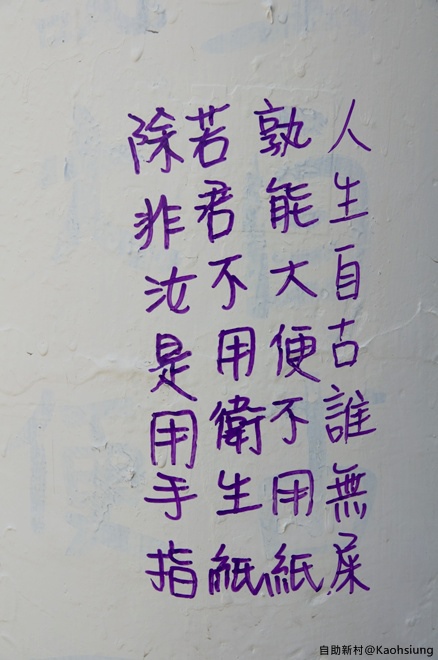 人生自古誰無屎
孰能大便不用紙
若君不用衛生紙
除非汝是用手指
自助新村@Kaohsiung